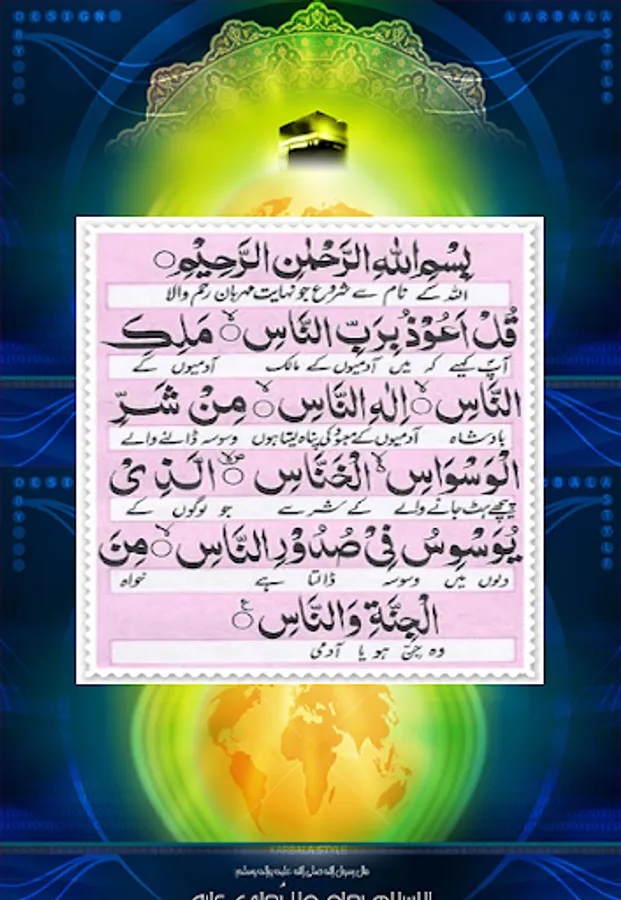 DESIGN
KARBALA
BY
STYLE
بِسْمِ اللّٰهِ الرَّحْمٰنِ الرَّحِيْمِ
اللہ کے نام سے شروع جو نہایت مہربان رحم والا
قُلْ اَعُوْذُ بِرَبِّ النَّاسِ مَلِكِ
آپ کہیے کہ میں آدمیوں کے مالک آدمیوں کے
النَّاسِ اِلٰهِ النَّاسِ مِنْ شَرِّ
بادشاہ آدمیوں کے معبود کی پناہ لیتا ہوں وسوسہ ڈالنے والے
الْوَسْوَاسِ الْخَنَّاسِ الَّذِيْ
پیچھے ہٹ جانے والے کے شر سے جو لوگوں کے
يُوَسْوِسُ فِيْ صُدُوْرِ النَّاسِ مِنَ
دلوں میں وسوسہ ڈالتا ہے خواہ
الْجِنَّةِ وَالنَّاسِ
وہ جن ہو یا آدمی
KARBALA STYLE
قال رسول الله صلی الله علیه وآله وسلم